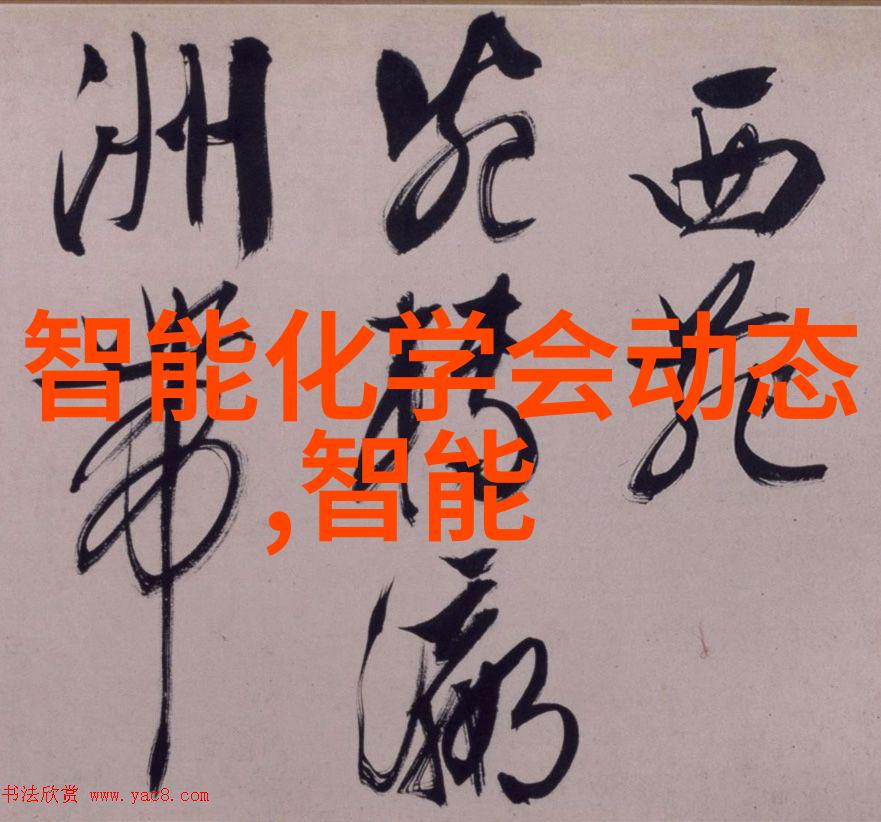 西苑
瀛
洲
智能化学会动态
,智能
书法欣赏 www.yac8.com